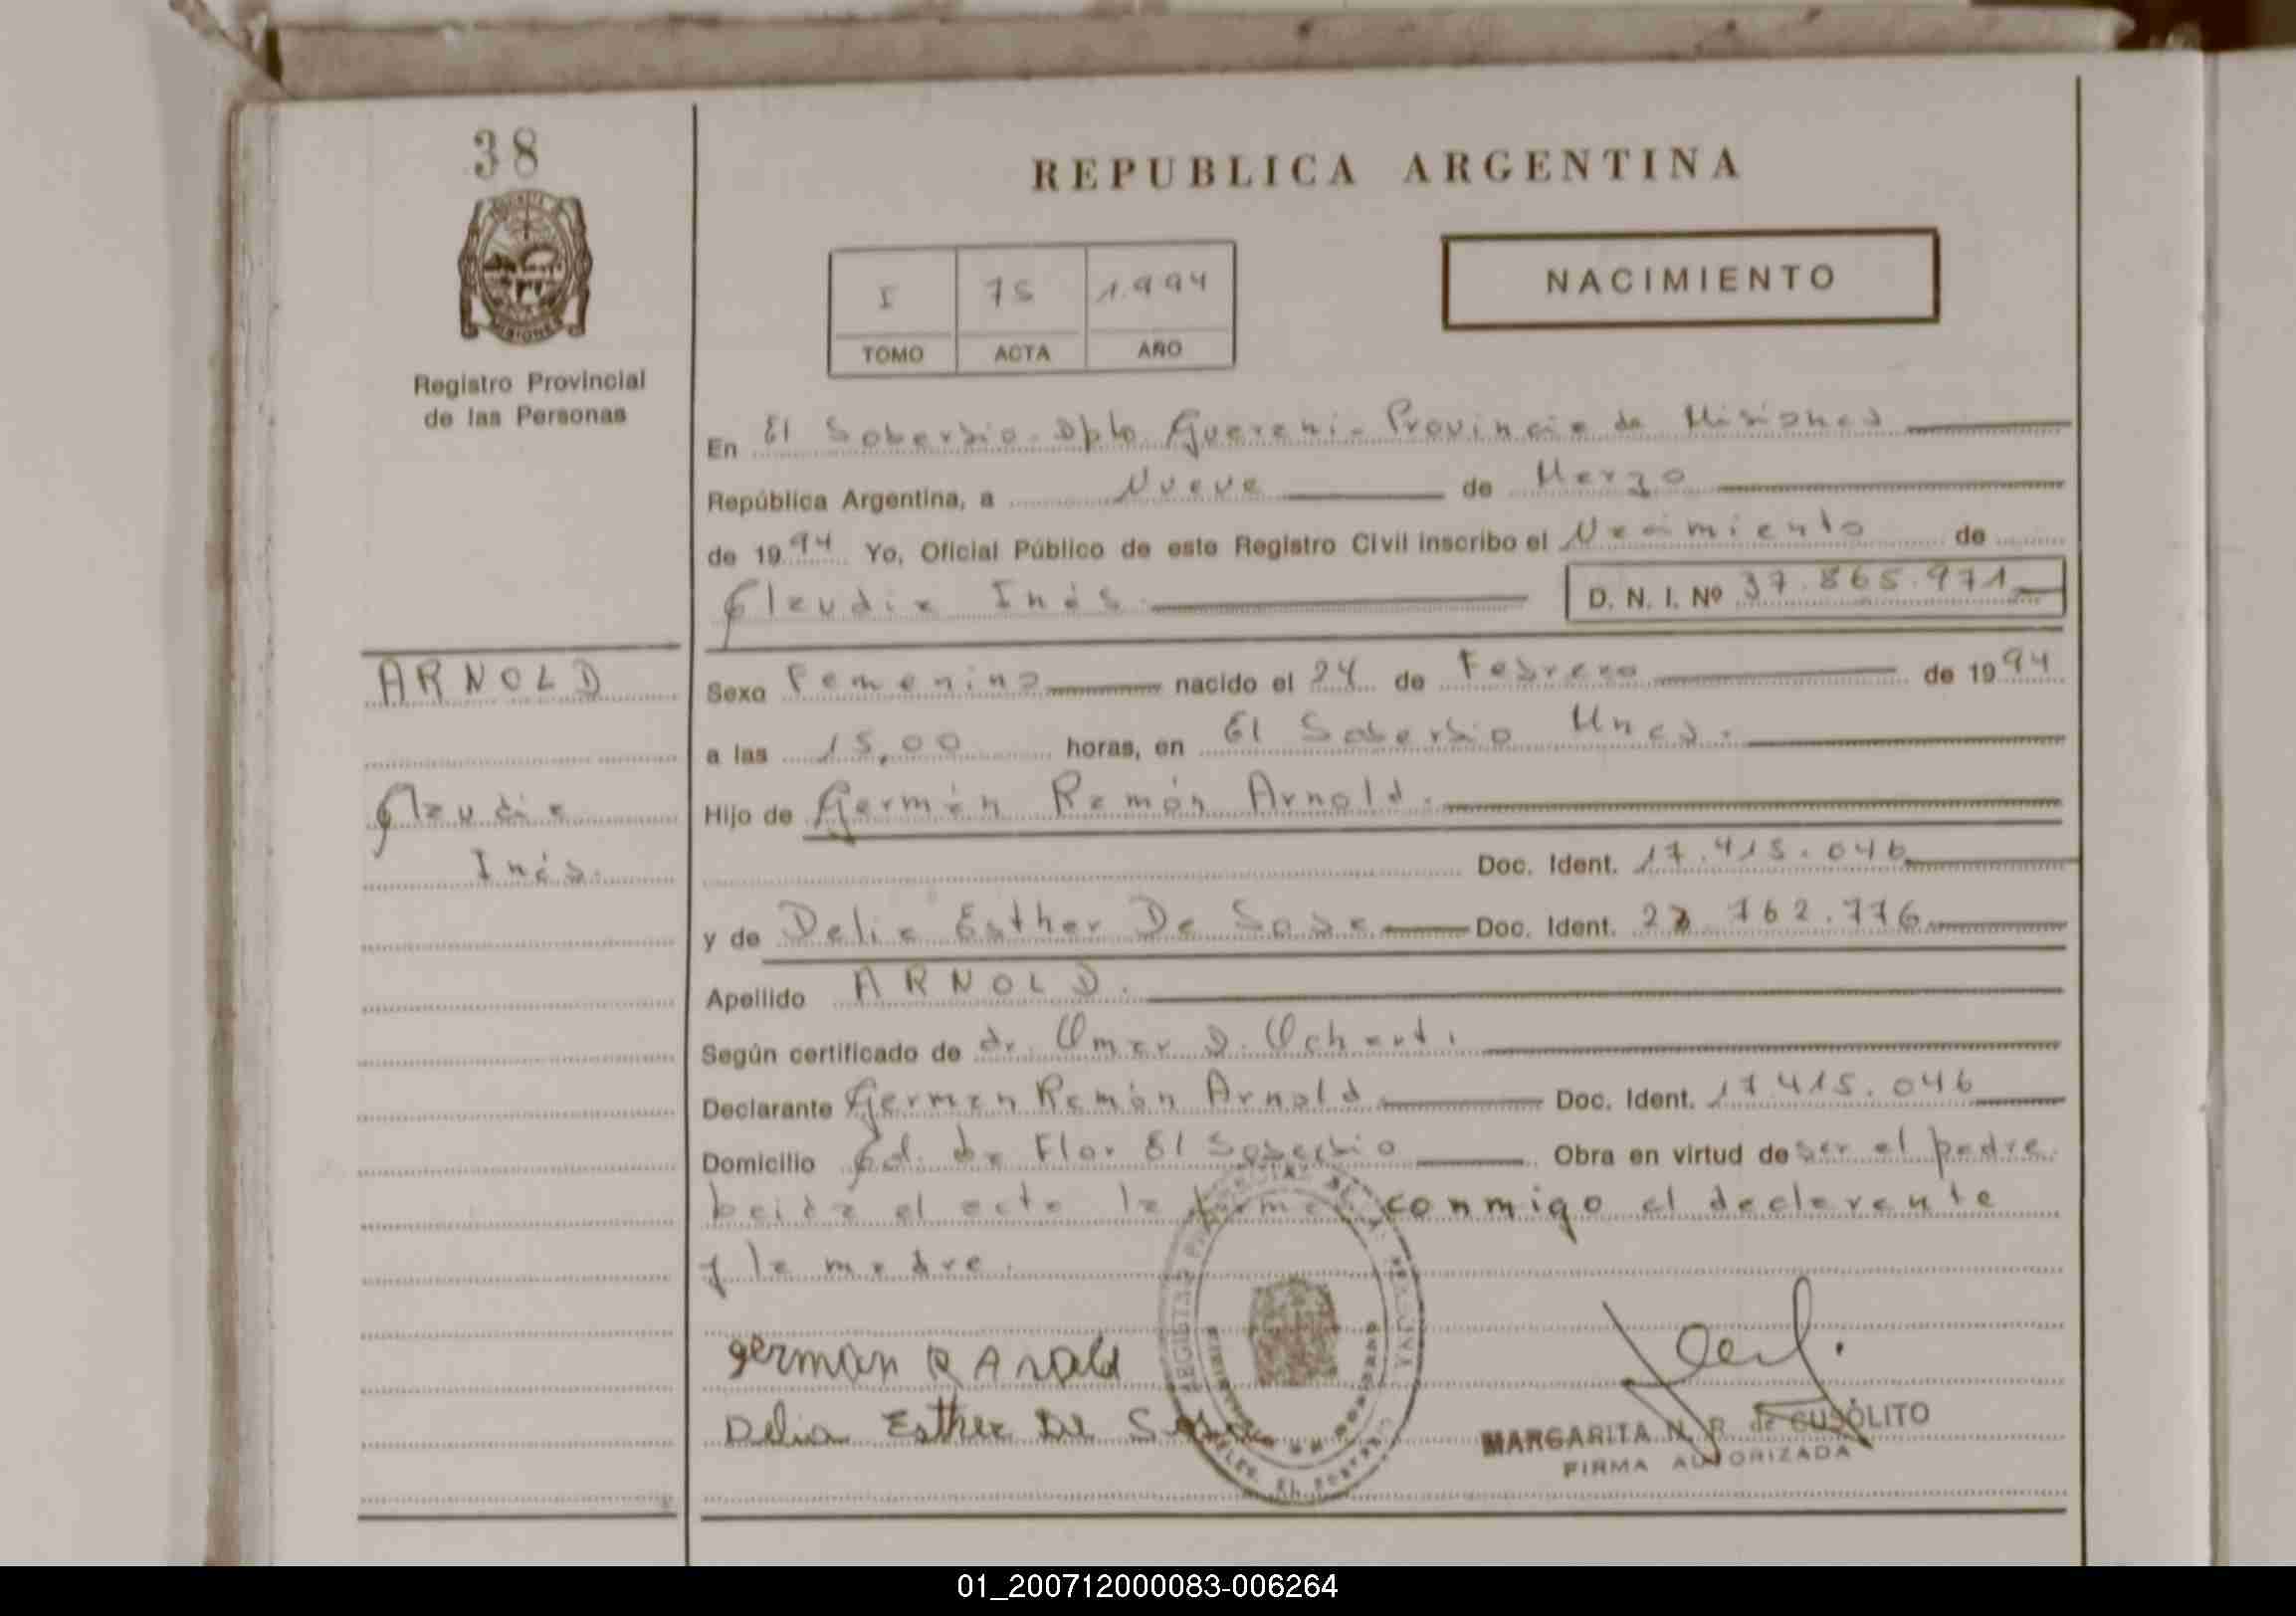 38
REPUBLICA ARGENTINA
MISIONES
Registro Provincial
de las Personas
I 75 1.994
TOMO ACTA AÑO
NACIMIENTO
En El Soberbio - Dpto Guarani - Provincia de Misiones
República Argentina, a Nueve de Marzo
de 1994 Yo, Oficial Público de este Registro Civil inscribo el Nacimiento de
Claudia Inés. D. N. I. Nº 37.865.971
ARNOLD
Claudia
Inés.
Sexo Femenino nacido el 24 de Febrero de 1994
a las 15,00 horas, en El Soberbio Mnes.
Hijo de Germán Ramón Arnold.
Doc. Ident. 17.415.046
y de Delia Esther De Sosa Doc. Ident. 762.776
Apellido ARNOLD.
Según certificado de dr. Omar D.
Declarante Germán Ramón Arnold Doc. Ident. 17.415.046
Domicilio Cd. de Flor El Soberbio Obra en virtud de ser el padre.
Leida el acta la firma conmigo el declarante
y la madre.
German R Arnold
Delia Esther De
MARGARITA N. R. de CUSOLITO
FIRMA AUTORIZADA
01_200712000083-006264